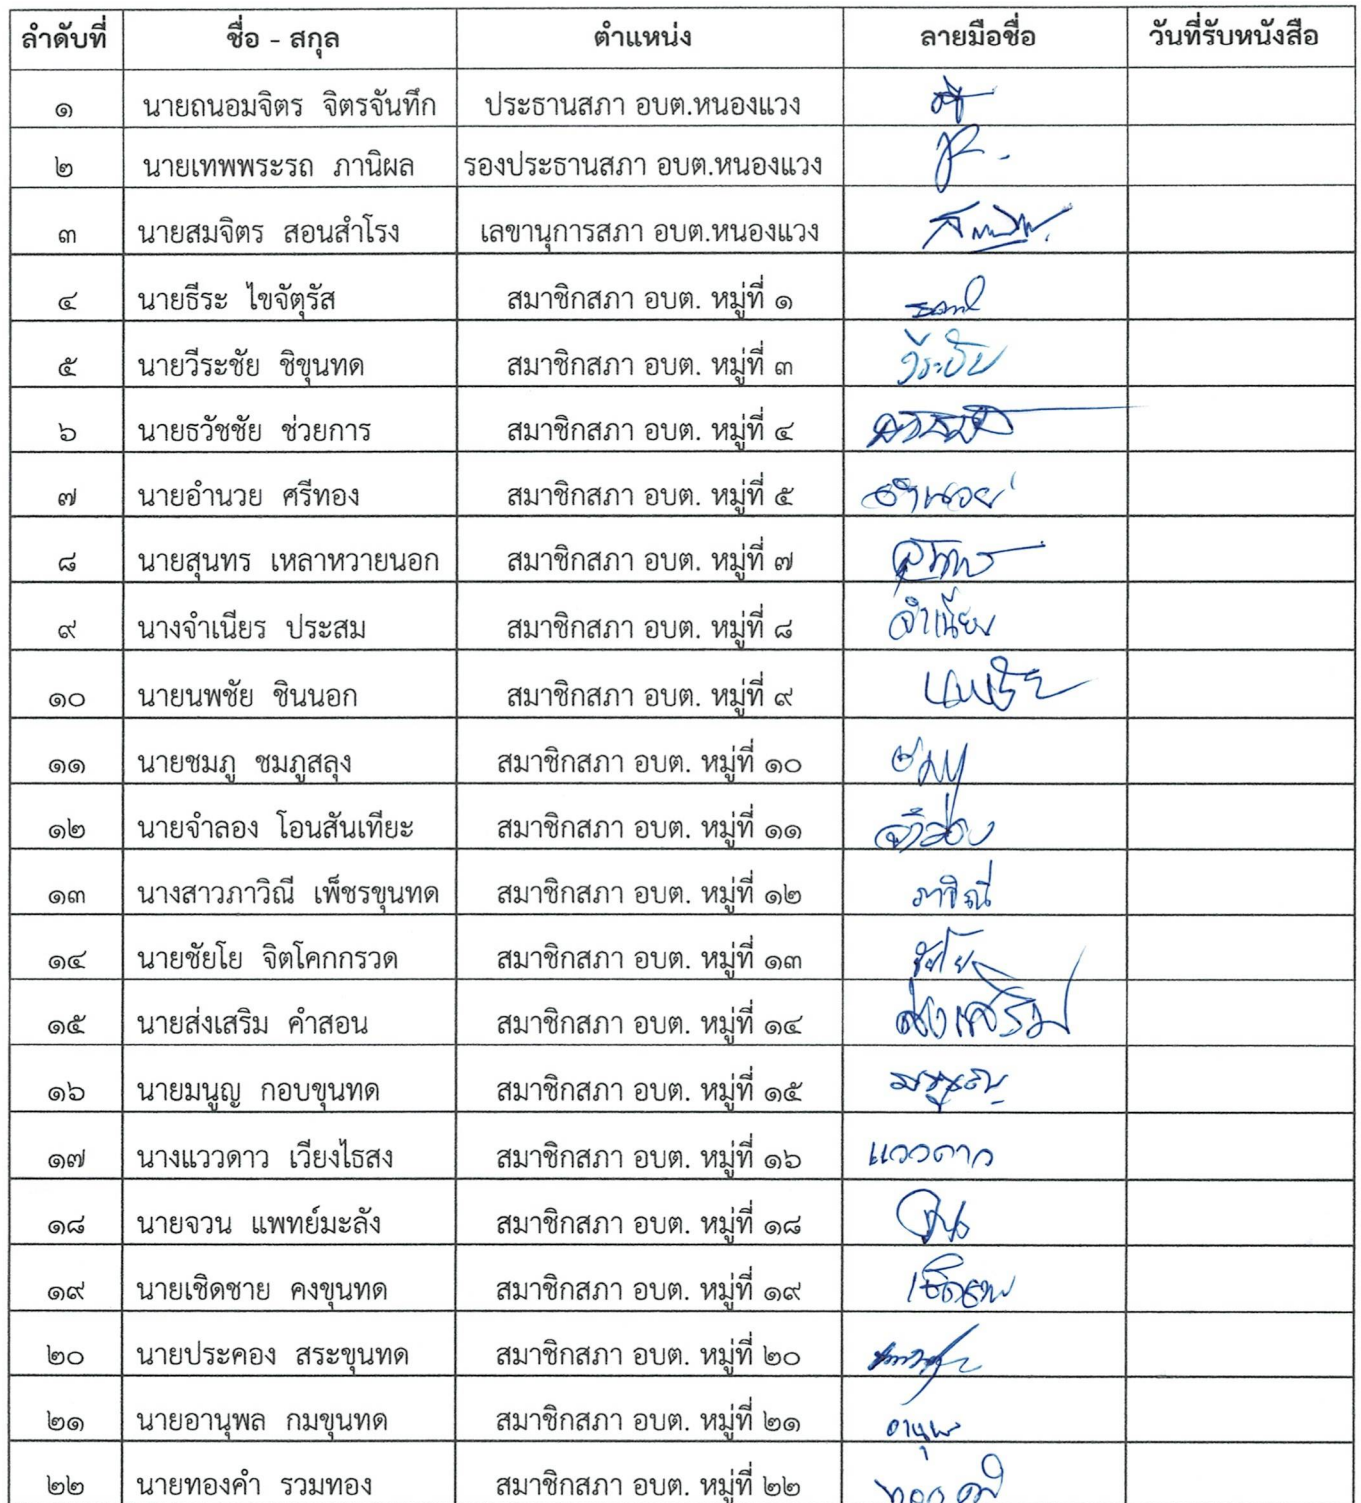 ลำดับที่ ชื่อ - สกุล ตำแหน่ง ลายมือชื่อ วันที่รับหนังสือ
๑ นายถนอมจิตร จิตรจันทึก ประธานสภา อบต.หนองแวง
๒ นายเทพพระรถ ภานิผล รองประธานสภา อบต.หนองแวง
๓ นายสมจิตร สอนสำโรง เลขานุการสภา อบต.หนองแวง
๔ นายธีระ ไขจัตุรัส สมาชิกสภา อบต. หมู่ที่ ๑
๕ นายวีระชัย ชิขุนทด สมาชิกสภา อบต. หมู่ที่ ๓ วีระชัย
๖ นายธวัชชัย ช่วยการ สมาชิกสภา อบต. หมู่ที่ ๔
๗ นายอำนวย ศรีทอง สมาชิกสภา อบต. หมู่ที่ ๕
๘ นายสุนทร เหลาหวายนอก สมาชิกสภา อบต. หมู่ที่ ๗
๙ นางจำเนียร ประสม สมาชิกสภา อบต. หมู่ที่ ๘ จำเนียร
๑๐ นายนพชัย ชินนอก สมาชิกสภา อบต. หมู่ที่ ๙ นพชัย
๑๑ นายชมภู ชมภูสลุง สมาชิกสภา อบต. หมู่ที่ ๑๐
๑๒ นายจำลอง โอนสันเทียะ สมาชิกสภา อบต. หมู่ที่ ๑๑
๑๓ นางสาวภาวิณี เพ็ชรขุนทด สมาชิกสภา อบต. หมู่ที่ ๑๒ ภาวิณี
๑๔ นายชัยโย จิตโคกกรวด สมาชิกสภา อบต. หมู่ที่ ๑๓ ชัยโย
๑๕ นายส่งเสริม คำสอน สมาชิกสภา อบต. หมู่ที่ ๑๔ ส่งเสริม
๑๖ นายมนูญ กอบขุนทด สมาชิกสภา อบต. หมู่ที่ ๑๕
๑๗ นางแววดาว เวียงไธสง สมาชิกสภา อบต. หมู่ที่ ๑๖ แววดาว
๑๘ นายจวน แพทย์มะลัง สมาชิกสภา อบต. หมู่ที่ ๑๘
๑๙ นายเชิดชาย คงขุนทด สมาชิกสภา อบต. หมู่ที่ ๑๙ เชิดชาย
๒๐ นายประคอง สระขุนทด สมาชิกสภา อบต. หมู่ที่ ๒๐
๒๑ นายอานุพล กมขุนทด สมาชิกสภา อบต. หมู่ที่ ๒๑
๒๒ นายทองคำ รวมทอง สมาชิกสภา อบต. หมู่ที่ ๒๒